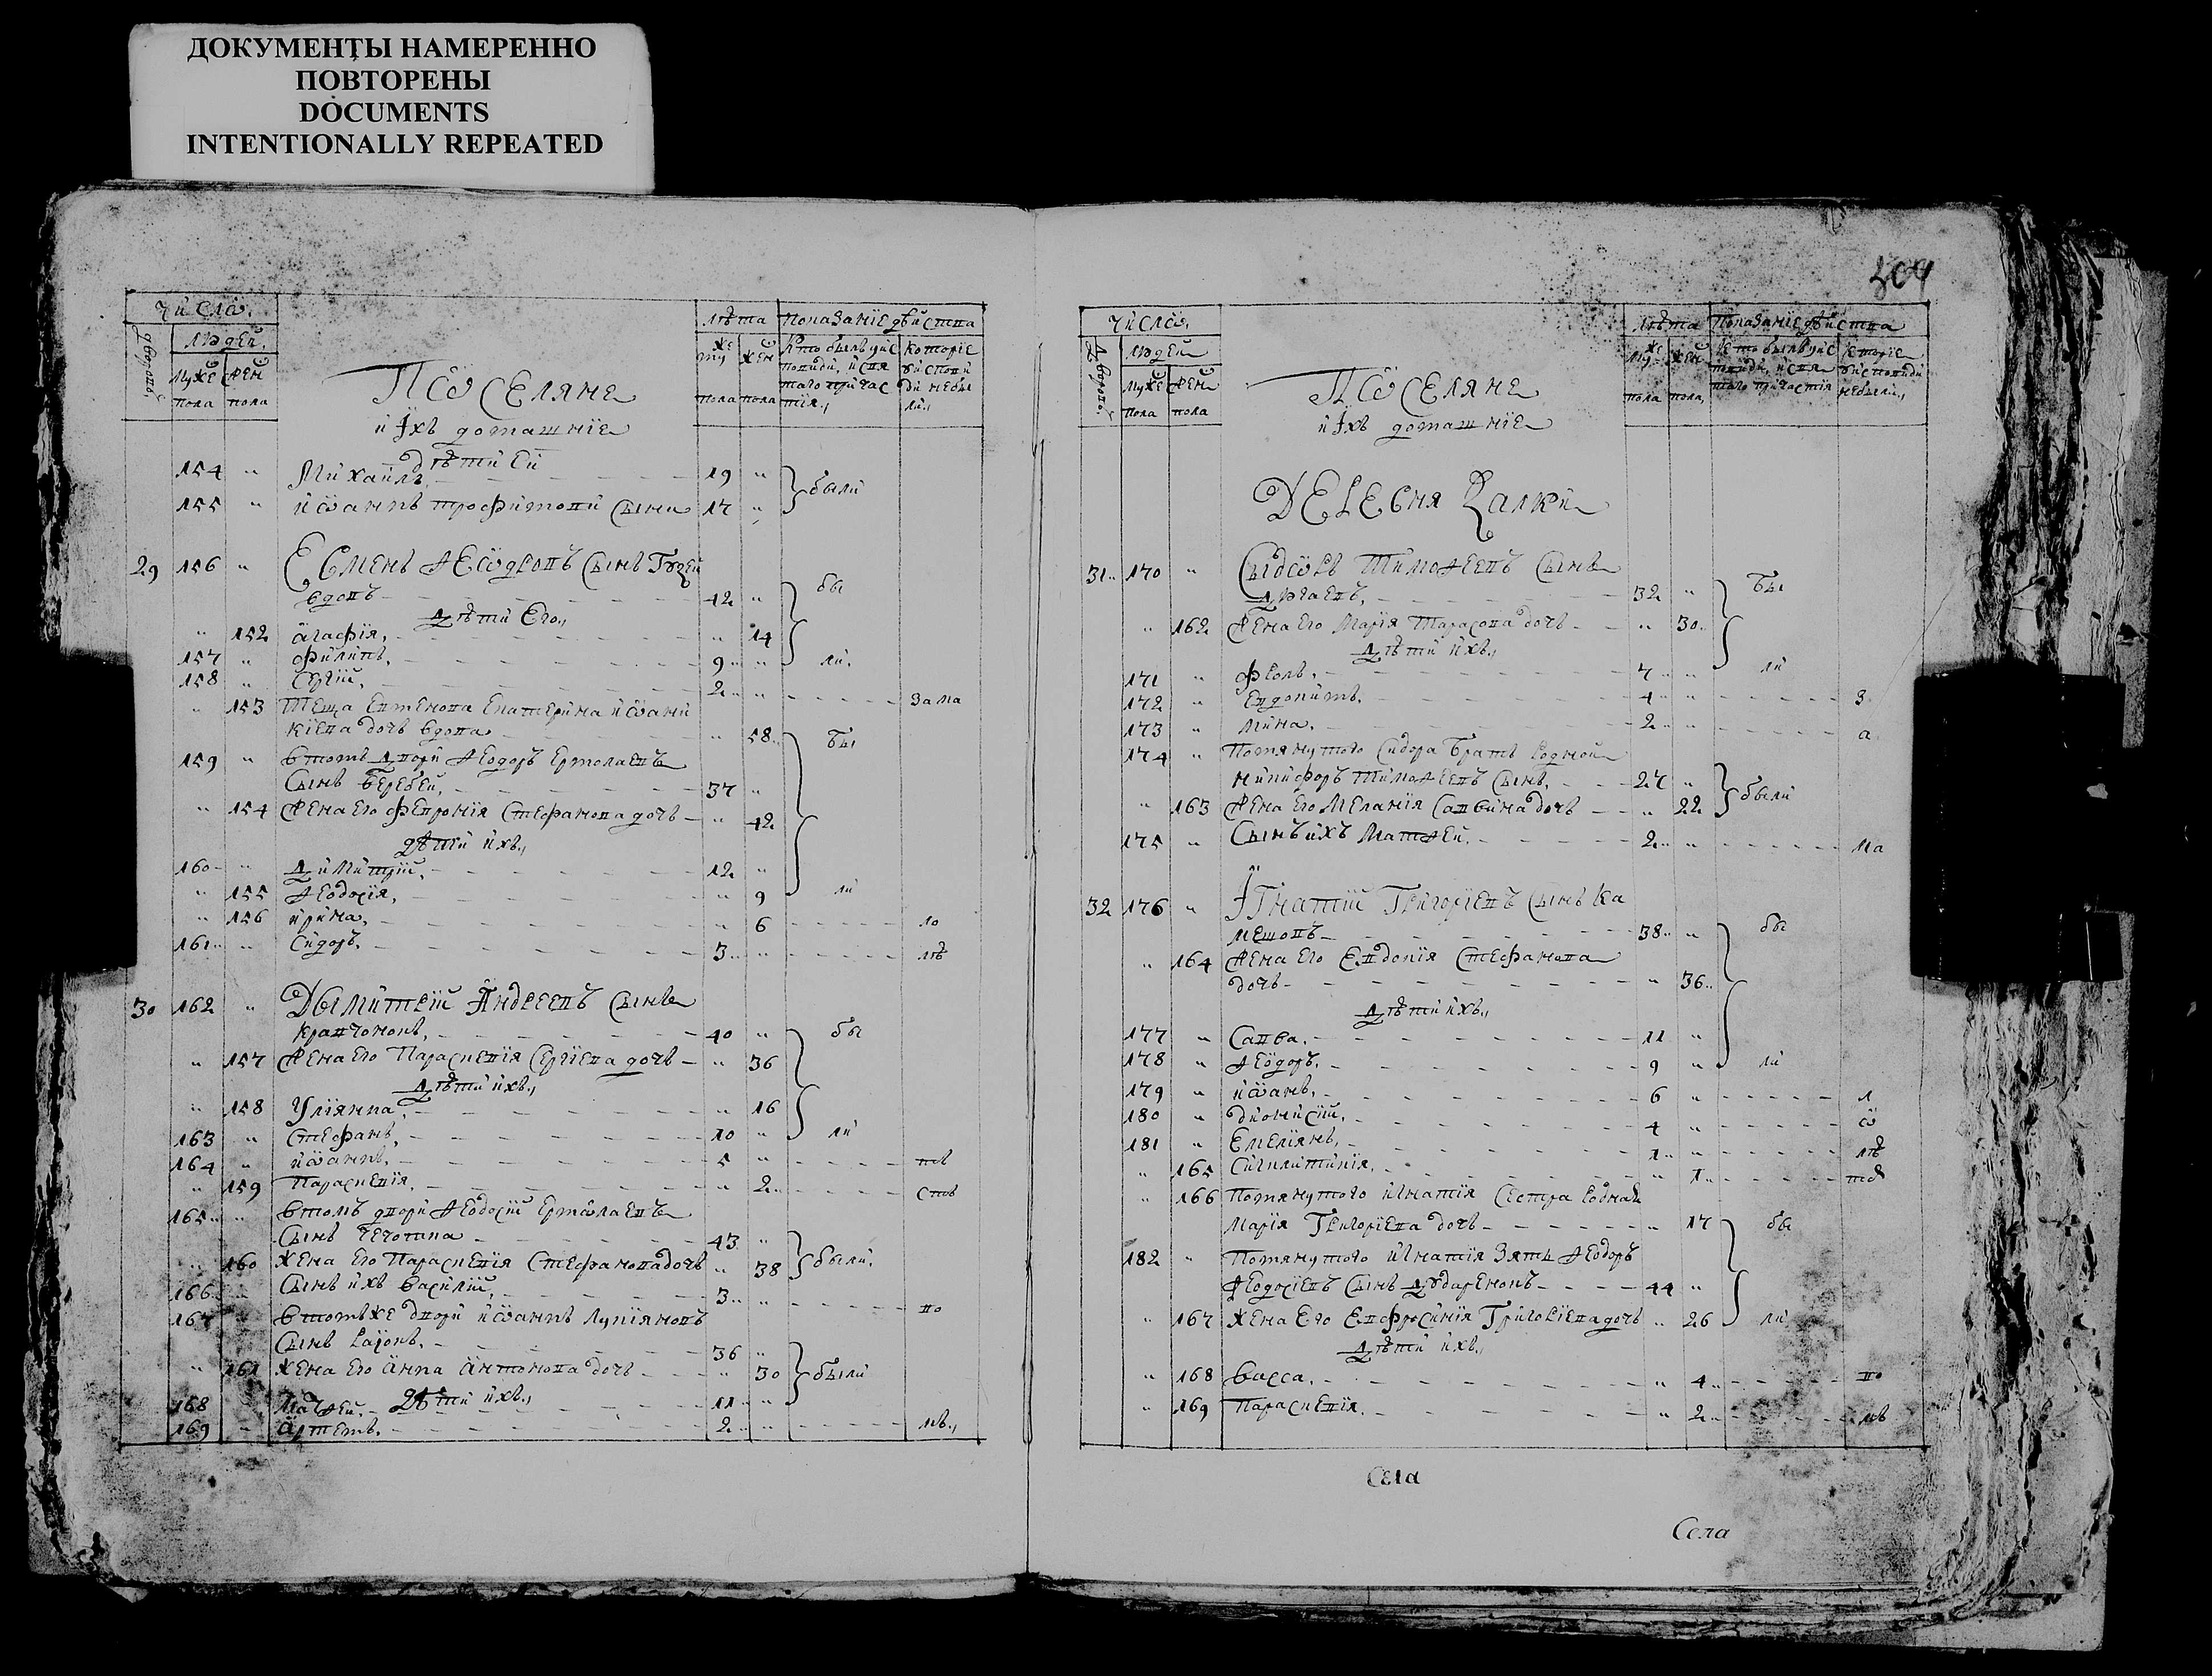 ДОКУМЕНТЫ НАМЕРЕННО
ПОВТОРЕНЫ
DOCUMENTS
INTENTIONALLY REPEATED
Числа.
дворовъ.
людей.
муже пола
жен пола
Поселяне
и Ихъ домашние
Лѣта
муже пола
жен пола
Показание действа
Кто былъ у ис
поведи, и свя
таго причас
тия.,
Которые
у испове
ди небы
ли.,
дѣти Ей
154 " Михаилъ. 19 " } были
155 " иоаннъ трофимови Сыни 17 "
29 156 " Семенъ Ѳеодоровъ Сынъ
вдовъ 42 " бы
Дѣти Его.,
" 152 агафия. " 14
157 " филипъ. 9 " ли.
158 " Сергий. 2 " за ма
" 153 Теща Евменова Екатерина иоани
киева дочъ вдова " 58 бы
159 " втомъ дворѣ Ѳеодоръ Ермолаевъ
Сынъ Беребей. 37 "
" 154 Жена Его феврония Стефанова дочъ " 42
дѣти ихъ.,
160 " Димитрий. 12 "
" 155 Ѳеодосия. " 9 ли
" 156 ирина. " 6 ло
161 " Сидоръ. 3 " лѣ
30 162 " Дымитрий Андреевъ Сынъ
Кравчонокъ. 40 " бы
" 157 Жена Его Параскевия Сергиева дочъ " 36
Дѣти ихъ.,
" 158 Улиянна. " 16
163 " Стефанъ. 10 " ли
164 " иоаннъ. 5 "
" 159 Параскевия. " 2 ствъ
165 " втомъ дворѣ Ѳеодосий Ермолаевъ
Сынъ Чечотка 43 "
" 160 Жена Его Параскевия Стефанова дочъ " 38 } были.
166 " Сынъ ихъ василий. 3 " по
167 " втомъ же дворѣ иоаннъ Лукияновъ
Сынъ 36 "
" 161 Жена Его Анна Антонова дочъ " 30 } были
дѣти ихъ.,
168 " Матѳей. 11 "
169 " Артемъ. 2 "
Числа.
Дворовъ.
людей
муже пола
жен пола
Поселяне
и Ихъ домашние
Лѣта
муже пола
жен пола,
Показание действа
Кто былъ у ис
поведи, и свя
таго причастия
которые
у исповеди
небыли.,
Деревня Галки
31 170 " Сидоръ Тимоѳеевъ Сынъ
32 " Бы
" 162 Жена Его Мария Тарасова дочъ " 30
Дѣти ихъ.,
171 " фролъ. 7 " ли
172 " Евдокимъ. 4 " з
173 " Мина. 2 " а
174 " Помянутого Сидора братъ родной
никифоръ Тимоѳеевъ Сынъ. 27 "
" 163 Жена Его Мелания Саввина дочъ " 22 } были
175 " Сынъ ихъ Матѳей. 2 " ма
32 176 " Игнатий Григориевъ Сынъ Ка
мешовъ 38 " бы
" 164 Жена Его Евдокия Стефанова
дочъ " 36
Дѣти ихъ.,
177 " Савва. 11 "
178 " Ѳеодоръ. 9 " ли
179 " иоаннъ. 6 "
180 " дионисий. 4 "
181 " Емелиянъ. 1 " лѣ
" 165 Сигклитикия. " 1
" 166 Помянутого игнатия Сестра родная
Мария Григориева дочъ " 17 бы
182 " Помянутого игнатия Зять Ѳеодоръ
Ѳеодосиевъ Сынъ 44 "
" 167 Жена Его Евфросиния Григориева дочъ " 26 ли
Дѣти ихъ.,
" 168 васса. " 4 по
" 169 Параскевия. " 2
Села
Села